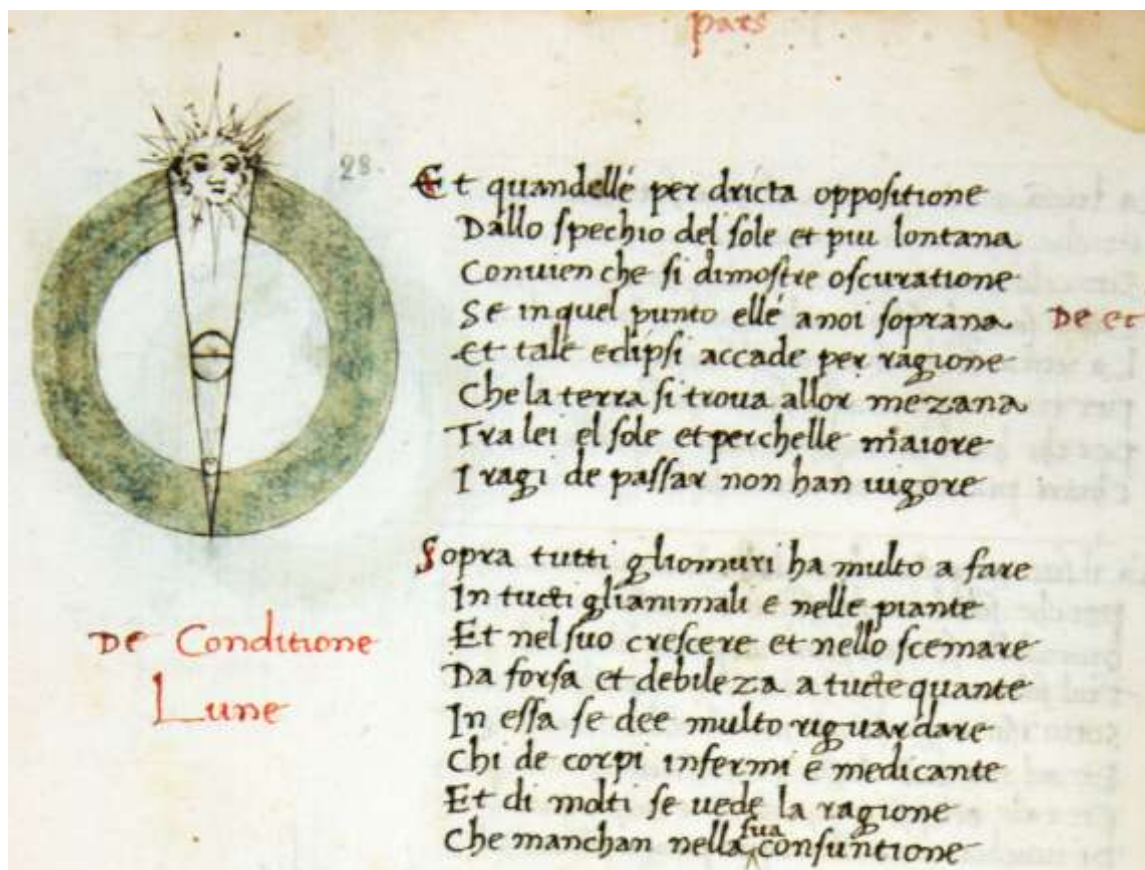 pars
28.
Et quandellé per dricta oppositione
Dallo spechio del sole et piu lontana
Convien che si dimostre oscuratione
Se inquel punto ellé anoi soprana
De et
Et tale eclipsi accade per ragione
Che la terra si trova allor mezana
Tra lei el sole et perchelle maiore
I ragi de passar non han uigore
Sopra tutti gliomuri ha multo a fare
In tucti glianimali e nelle piante
Et nel suo crescere et nello scemare
Da forsa et debileza a tucte quante
In essa se dee multo riguardare
Chi de corpi infermi e medicante
Et di molti se uede la ragione
Che manchan nella sua consuntione
De Conditione
Lune